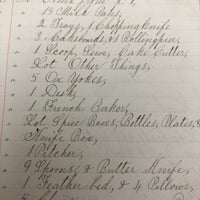 " 13 Milk Pans,
" 2 Trays, 1 Chopping Knife
" 2 Cakeboards, & 1 Rollingpin,
" 1 Scoop, Sieve, Cake Cutter,
" Lot Other Things,
" 5 Ox Yokes,
" 1 Desk,
" 1 French Baker,
" Lot, Spice Boxes, Bottles, Plates, &
Knife Box,
" 1 Pitcher,
" 9 Spoons, & Butter Knife,
" 1 Feather bed, & 4 Pillows,